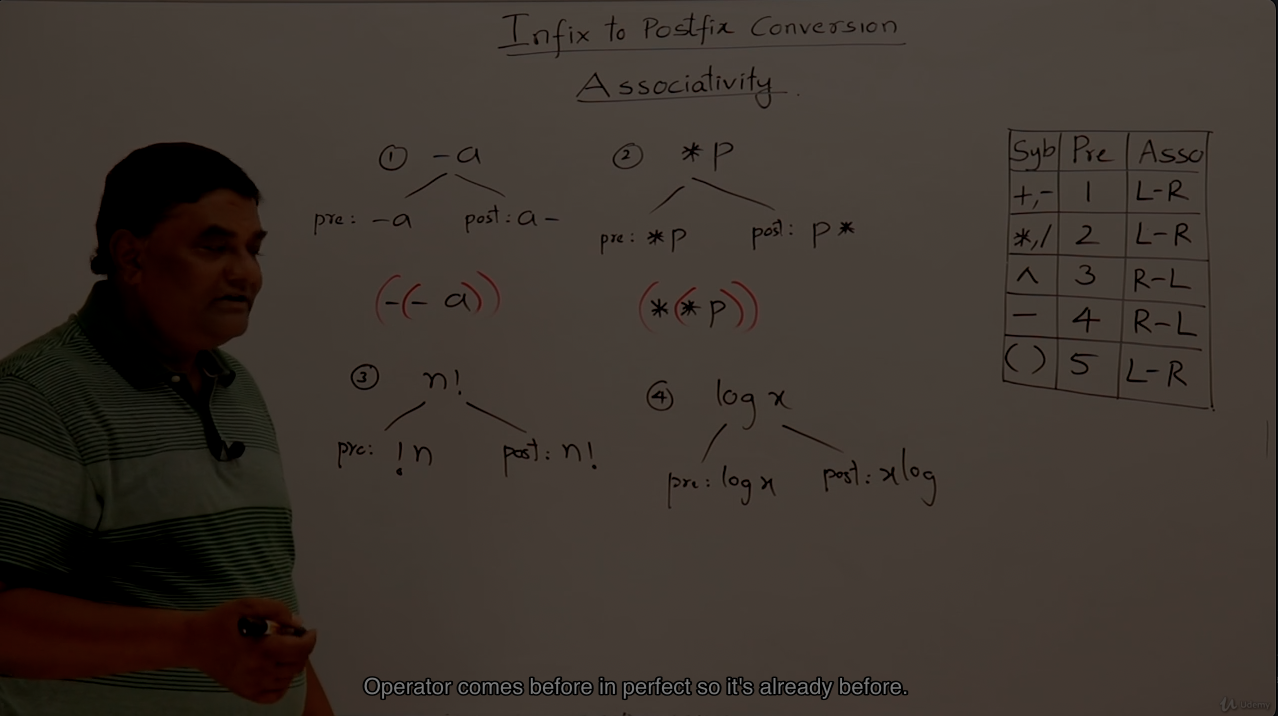 Infix to Postfix Conversion
Associativity.
① -a
pre: -a post: a -
(-(- a))
② *p
pre: *p post: p *
(*(*p))
③ n!
pre: !n post: n!
④ log x
pre: log x post: x log
Syb Pre Asso
+,- 1 L-R
*,/ 2 L-R
^ 3 R-L
- 4 R-L
( ) 5 L-R
Operator comes before in perfect so it's already before.
Udemy